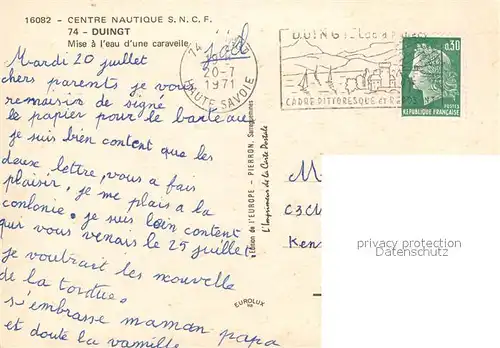 16082 - CENTRE NAUTIQUE S. N. C. F.
74 - DUINGT
Mise à l'eau d'une caravelle
Mardi 20 juillet
chers parents je vous
remaisin de signé
le papier pour le bateau
je suis bien content que les
deux, lettre, vous a fais
plaisir, je me plais a la
conlonie. je suis bien content
que vous venais le 25 juillet
je voutrait les nouvelle
de la tortue.
s'embrasse maman papa
et doute la vamille
74
20-7
1971
HAUTE SAVOIE
DUINGT
CADRE PITTORESQUE et
0,30
POSTES
REPUBLIQUE FRANÇAISE
Edition de l'EUROPE - PIERRON, Sarreguemines
L'Imprimeur de la Carte Postale
EUROLUX
M
C3.C
Ken
privacy protection
Datenschutz